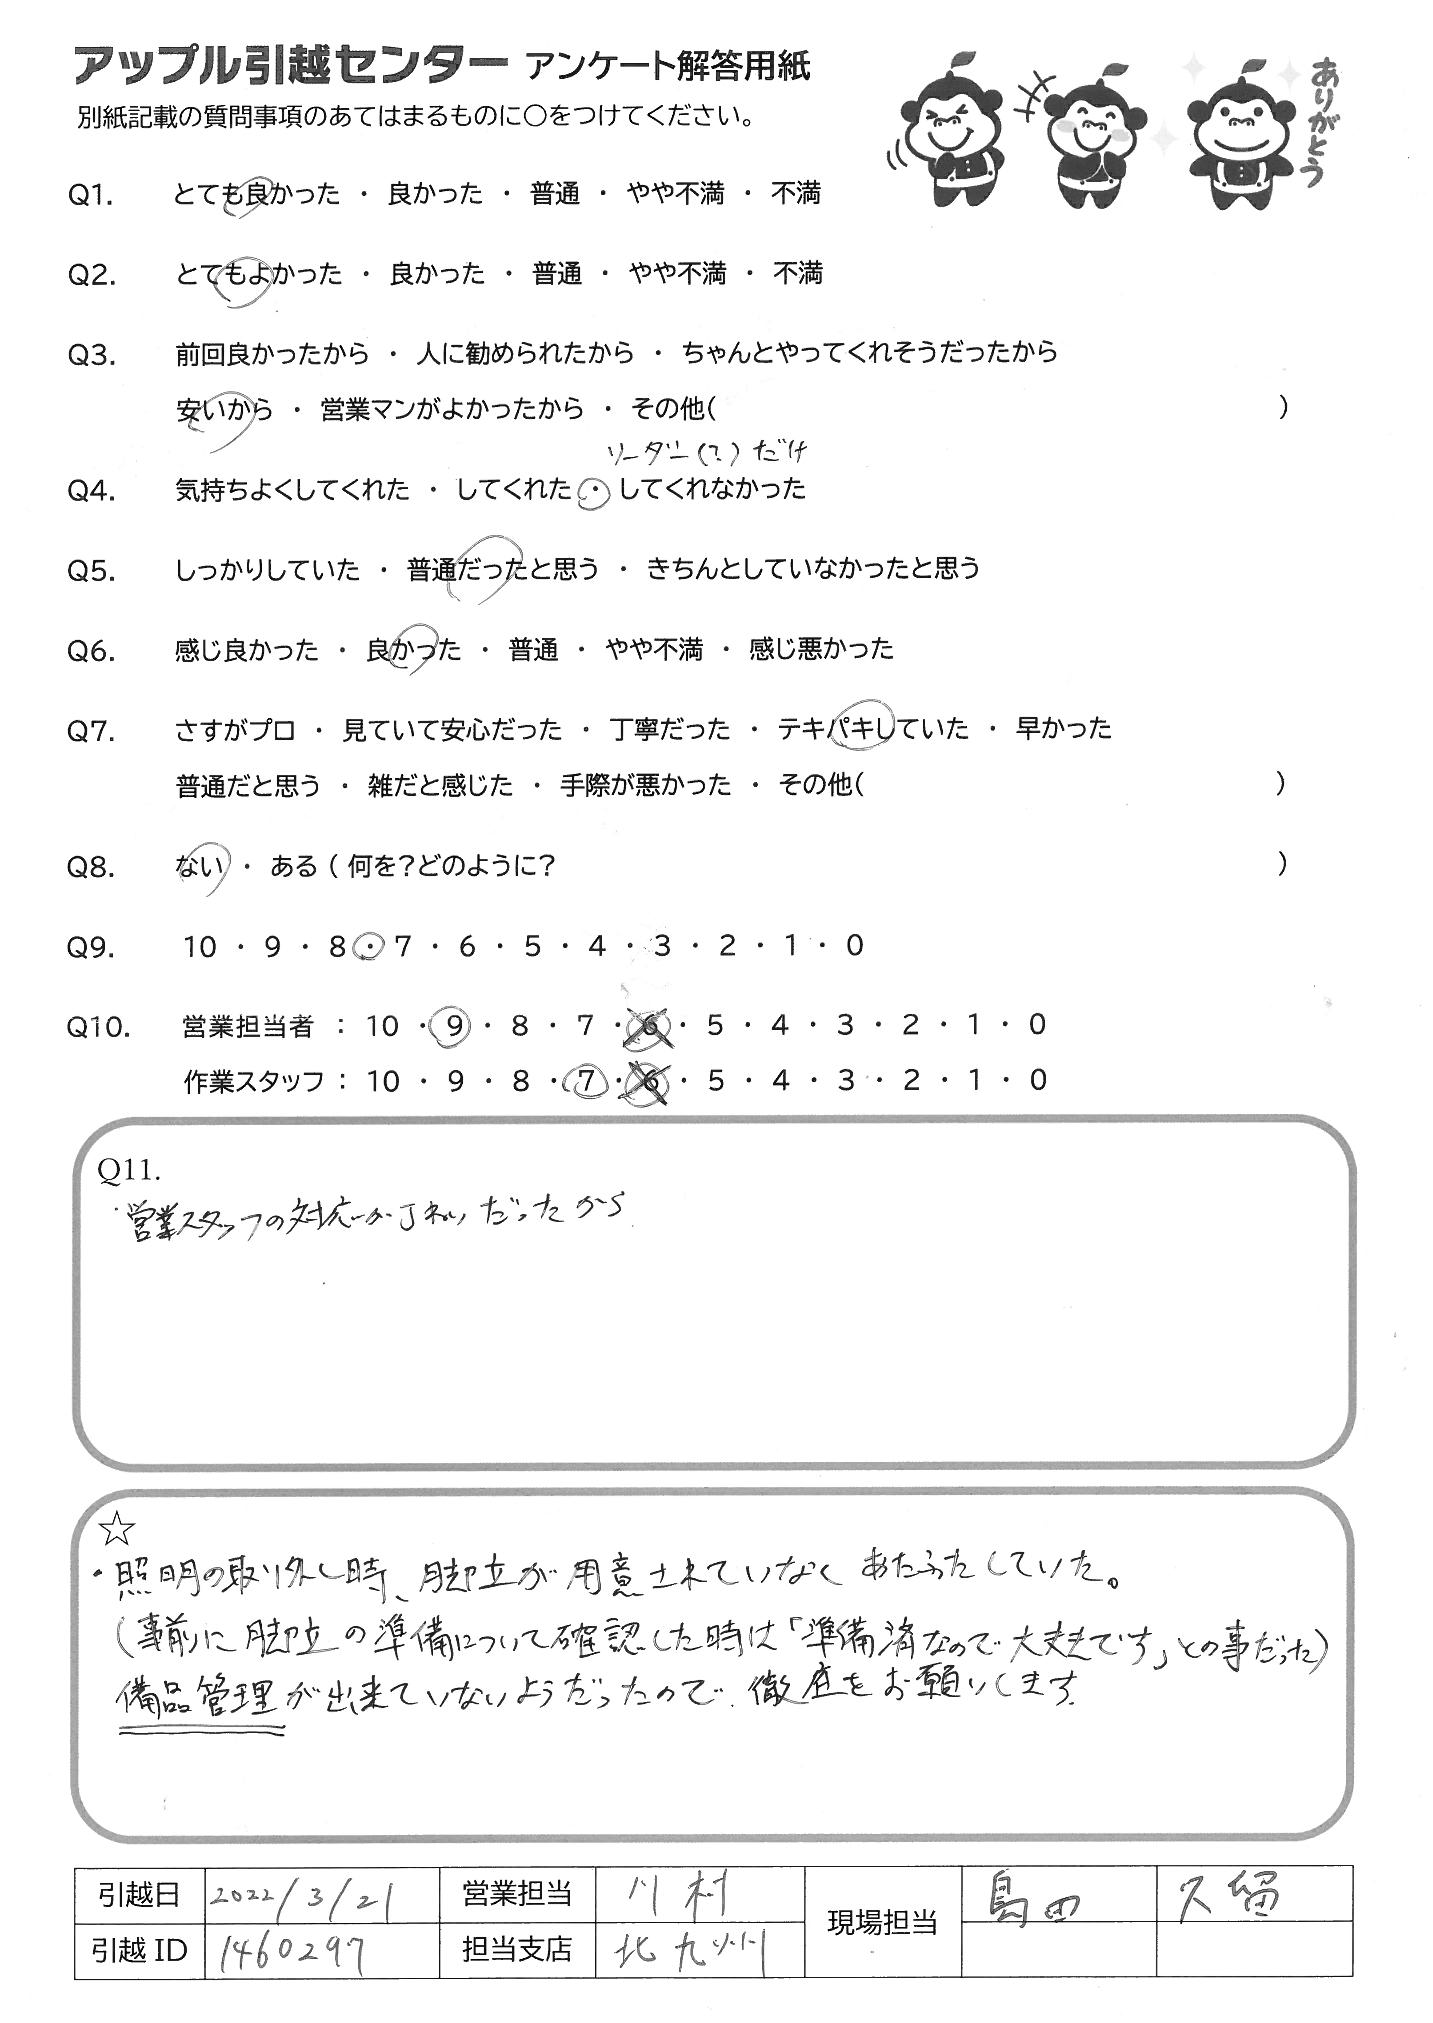 アップル引越センター アンケート解答用紙
別紙記載の質問事項のあてはまるものに〇をつけてください。
ありがとう
Q1. とても良かった ・ 良かった ・ 普通 ・ やや不満 ・ 不満
Q2. とてもよかった ・ 良かった ・ 普通 ・ やや不満 ・ 不満
Q3. 前回良かったから ・ 人に勧められたから ・ ちゃんとやってくれそうだったから
安いから ・ 営業マンがよかったから ・ その他( )
リーダー(?)だけ
Q4. 気持ちよくしてくれた ・ してくれた ・ してくれなかった
Q5. しっかりしていた ・ 普通だったと思う ・ きちんとしていなかったと思う
Q6. 感じ良かった ・ 良かった ・ 普通 ・ やや不満 ・ 感じ悪かった
Q7. さすがプロ ・ 見ていて安心だった ・ 丁寧だった ・ テキパキしていた ・ 早かった
普通だと思う ・ 雑だと感じた ・ 手際が悪かった ・ その他( )
Q8. ない ・ ある ( 何を?どのように? )
Q9. 10 ・ 9 ・ 8 ・ 7 ・ 6 ・ 5 ・ 4 ・ 3 ・ 2 ・ 1 ・ 0
Q10. 営業担当者 : 10 ・ 9 ・ 8 ・ 7 ・ 6 ・ 5 ・ 4 ・ 3 ・ 2 ・ 1 ・ 0
作業スタッフ : 10 ・ 9 ・ 8 ・ 7 ・ 6 ・ 5 ・ 4 ・ 3 ・ 2 ・ 1 ・ 0
Q11.
・営業スタッフの対応が丁ねいだったから
☆
・照明の取り外し時、脚立が用意されていなくあたふたしていた。
(事前に脚立の準備について確認した時は「準備済なので大丈夫です」との事だった)
備品管理が出来ていないようだったので、徹底をお願いします。
引越日 2022/3/21 営業担当 川村 現場担当 島田 久留
引越ID 1460297 担当支店 北九州